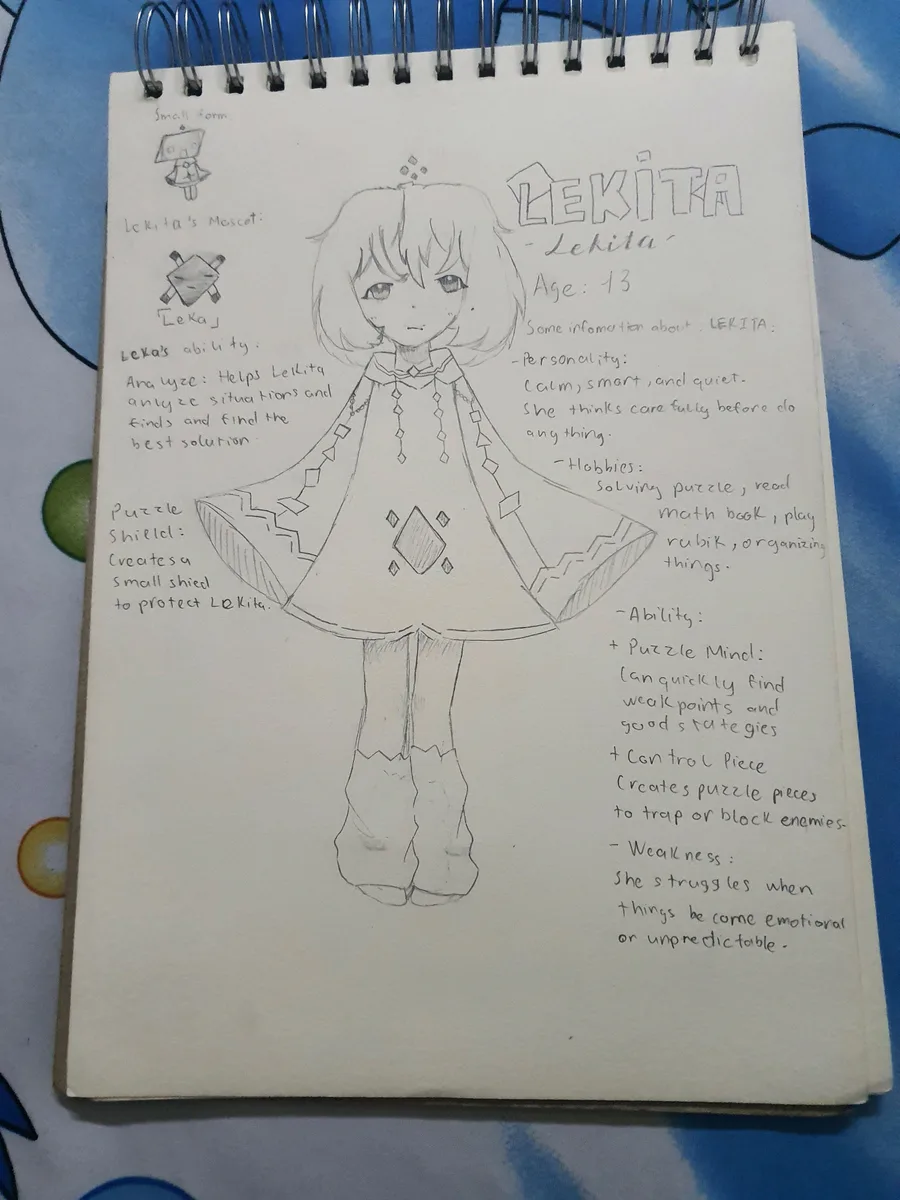 Small form
Lekita's Mascot:
「Leka」
Leka's ability:
Analyze: Helps Lekita
anlyze situations and
finds and find the
best solution.
Puzzle
Shield:
Creates a
small shied
to protect Lekita.
LEKITA
- Lekita -
Age: 13
Some infomation about LEKITA:
- Personality:
Calm, smart, and quiet.
She thinks carefully before do
any thing.
- Hobbies:
Solving puzzle, read
math book, play
rubik, organizing
things.
- Ability:
+ Puzzle Mind:
Can quickly find
weakpoints and
good stategies
+ Control Piece
Creates puzzle pieces
to trap or block enemies.
- Weakness:
She struggles when
things become emotional
or unpredictable.